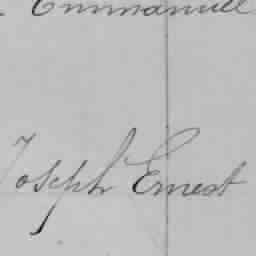 Emmanuel
Joseph Ernest